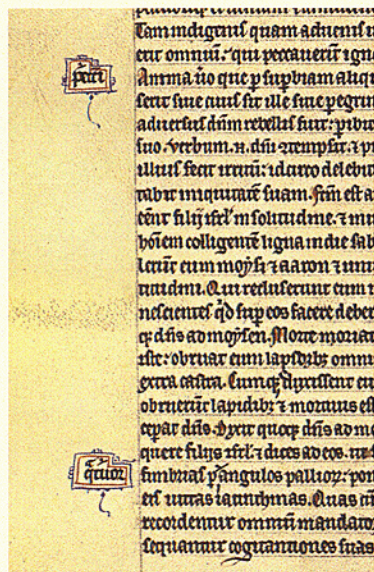 Tam indigenis quam aduenis u
erit omniū. qui peccauerīt igno
p̄cc̄i
Anima ūo que p supbiam aliq
serit siue ciuis sit ille siue pegrin
aduersus dn̄m rebellis fuit: pibit
suo. verbum .n. dn̄i ꝯtempsit. ⁊ p
illius fecit irritū: idcirco delebit
tabit iniquitatē suam. Fc̄m est a
cēnt filij isrl' in solitudine. ⁊ inu
hōiem colligentē ligna in die sab
lerūt eum moysi ⁊ aaron ⁊ uni
titudini. Qui recluserunt eum i
nescientes qd̄ sup eos facere deber
qꝫ dn̄s ad moysen. Morte moriat
iste: obruat eum lapidibꝫ omni
extra castra. Cumqꝫ eduxissent eu
obruerūt lapidibꝫ ⁊ mortuus es
cepat dn̄s. Dixit quoqꝫ dn̄s ad mo
quere filijs isrl' ⁊ dices ad eos. ut f
qͣtuor
fimbrias p angulos palliorꝫ: pon
eis uittas iacinthinas. Quas cū
recordentur omniū mandator
sequantur cogitationes suas